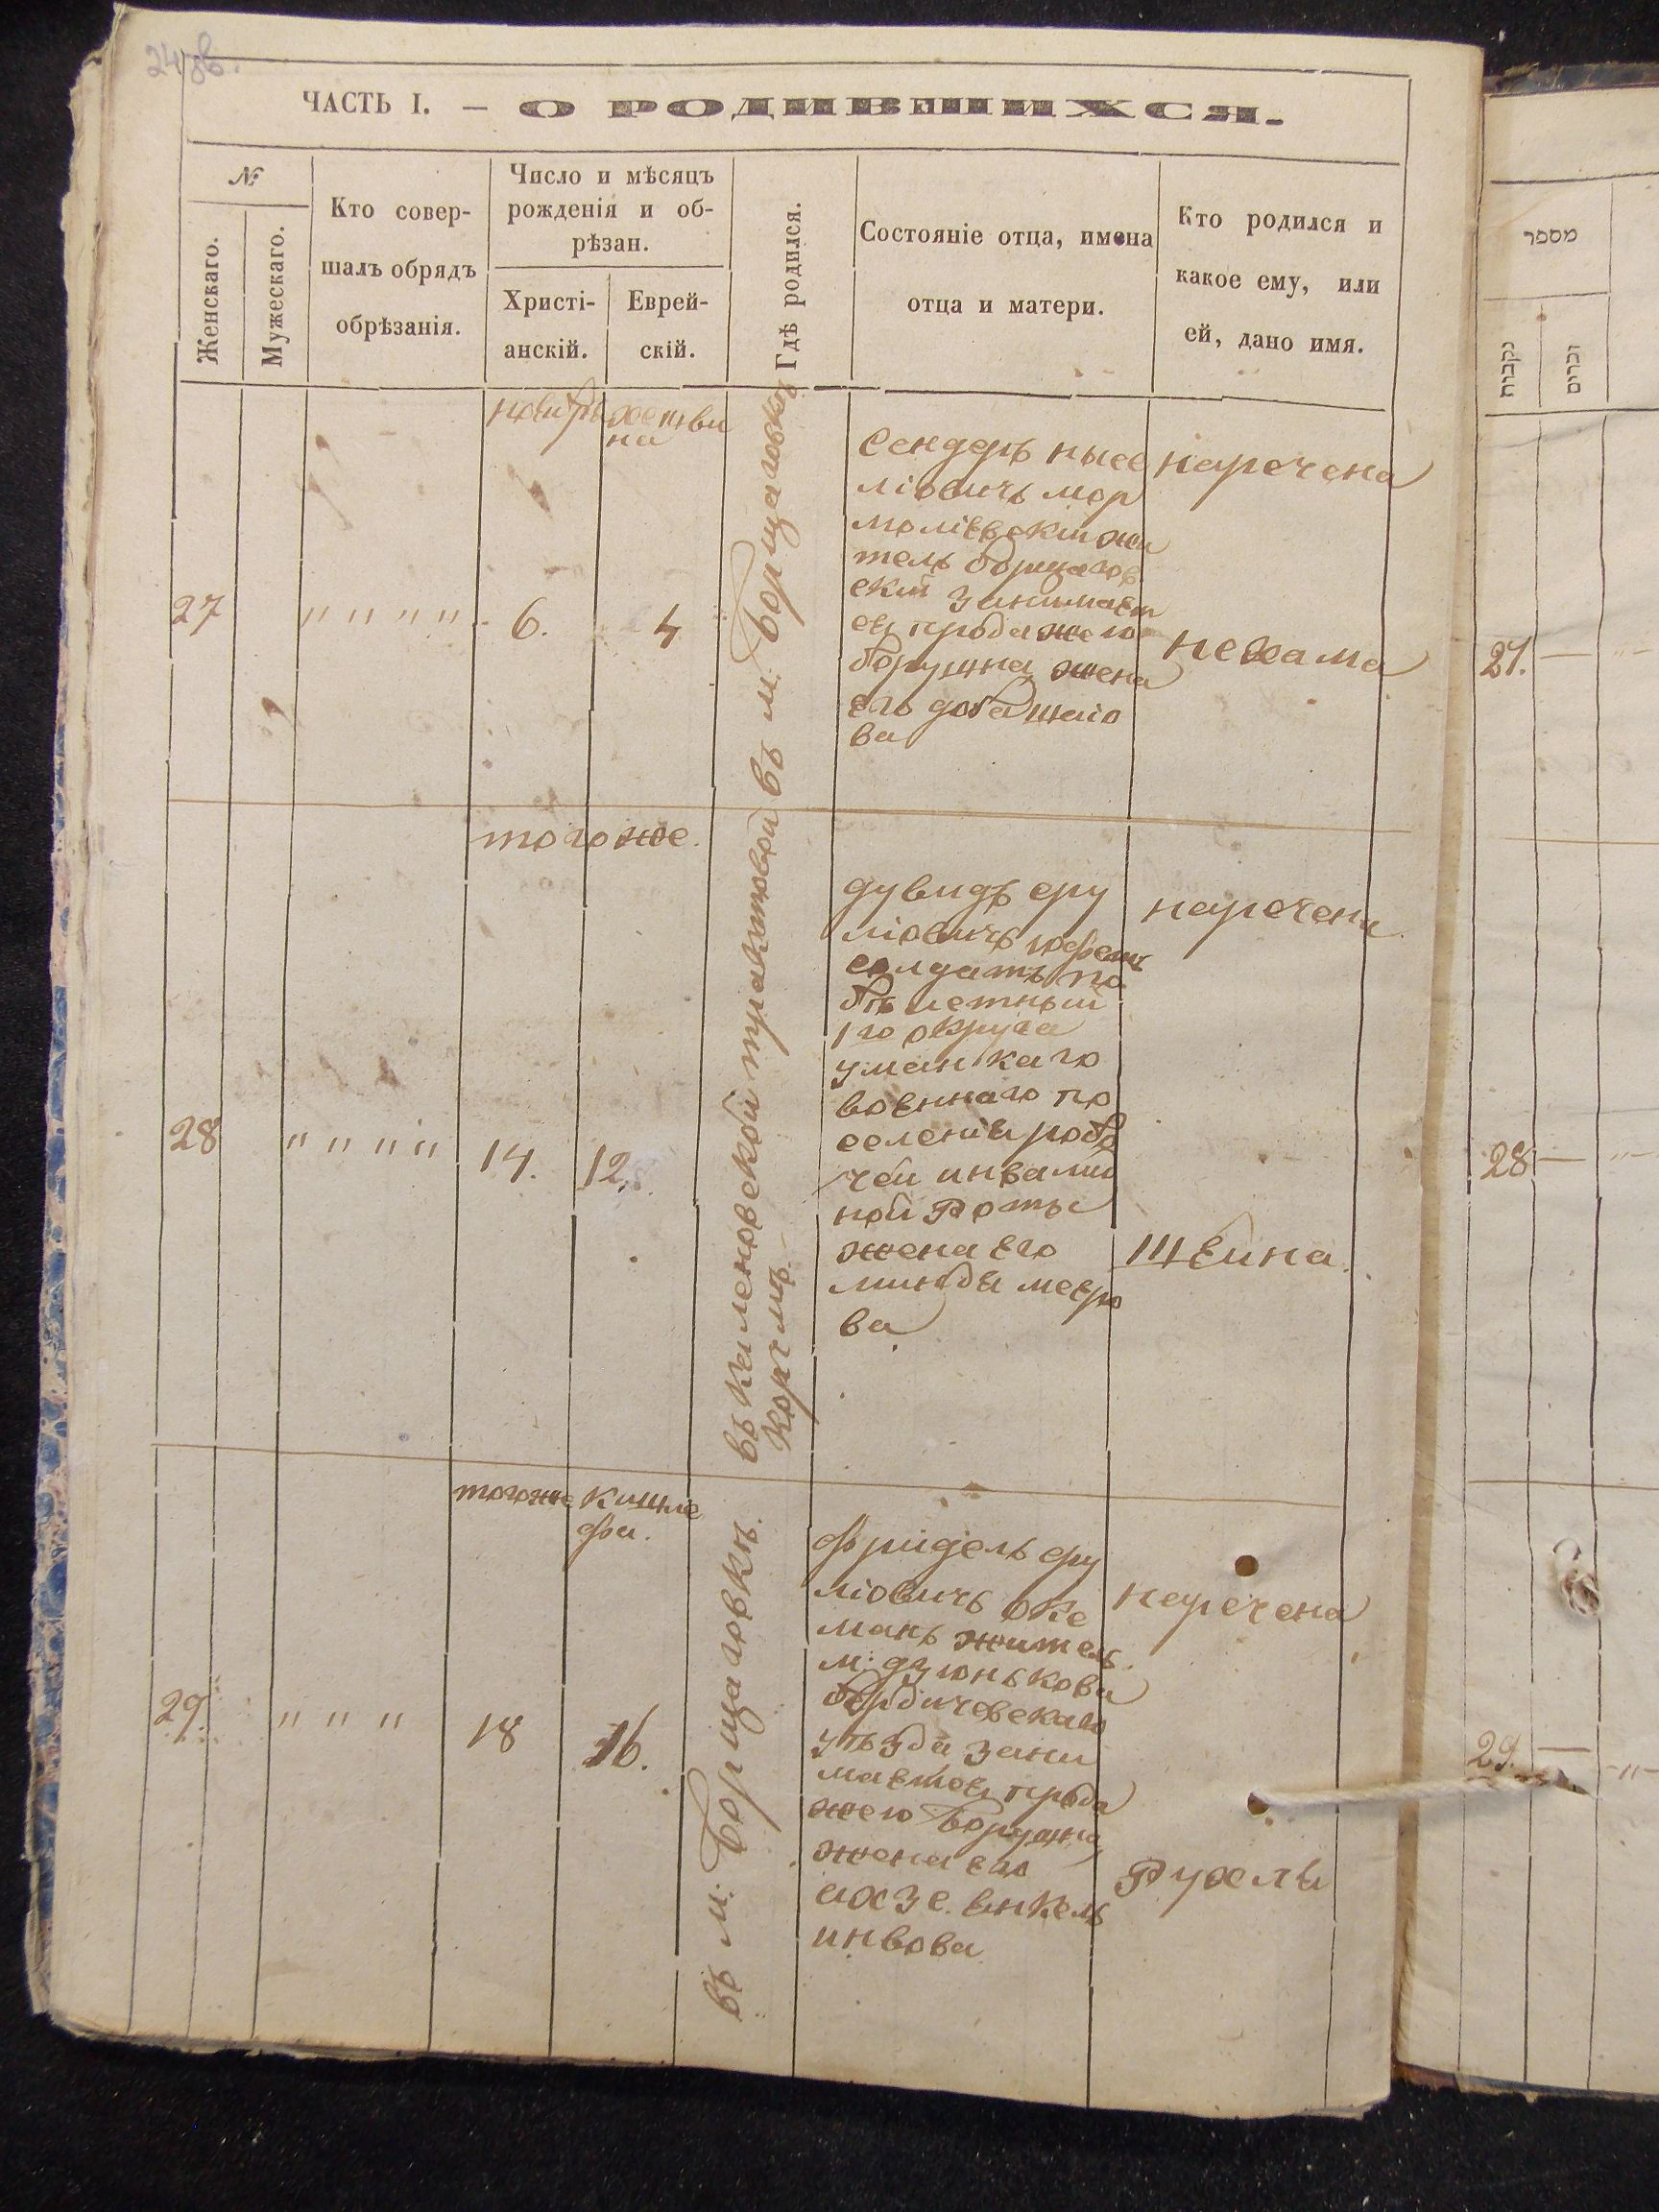 24 об.
ЧАСТЬ I. — О РОДИВШИХСЯ.
№
Женскаго.
Мужескаго.
Кто совер-
шалъ обрядъ
обрѣзанія.
Число и мѣсяцъ
рожденія и об-
рѣзан.
Христі-
анскій.
Еврей-
скій.
Гдѣ родился.
Состояніе отца, имена
отца и матери.
Кто родился и
какое ему, или
ей, дано имя.
27
" " " "
6.
4
въ м: Борщаговкѣ
Сендеръ
ліовичъ мор
молiевскiй жи
тель борщагов
скiй занимает
ся продажею
борушна жена
его доба шаiо
ва
наречена
нехама
28
тогоже.
" " " "
14.
12.
въ каленовской трактовой
корчмѣ
дувидъ сру
ліовичъ
солдатъ по
билетный
1го округа
уманкаго
военнаго по
селенiя робо
чей инвалид
ной роты
жена его
минда меэро
ва
наречена
шейна.
29
тогоже
кишле
фа.
" " "
18
16.
въ м: Борщаговкѣ.
фридель сру
ліовичъ оке
манъ житель
м: дзюнькова
бердичевскаго
уѣзда зани
мается прода
жею борушна
жена его
хазе. енкель
инвова
наречена
рухеля
מספר
נקבות
זכרים
27.
28
29.